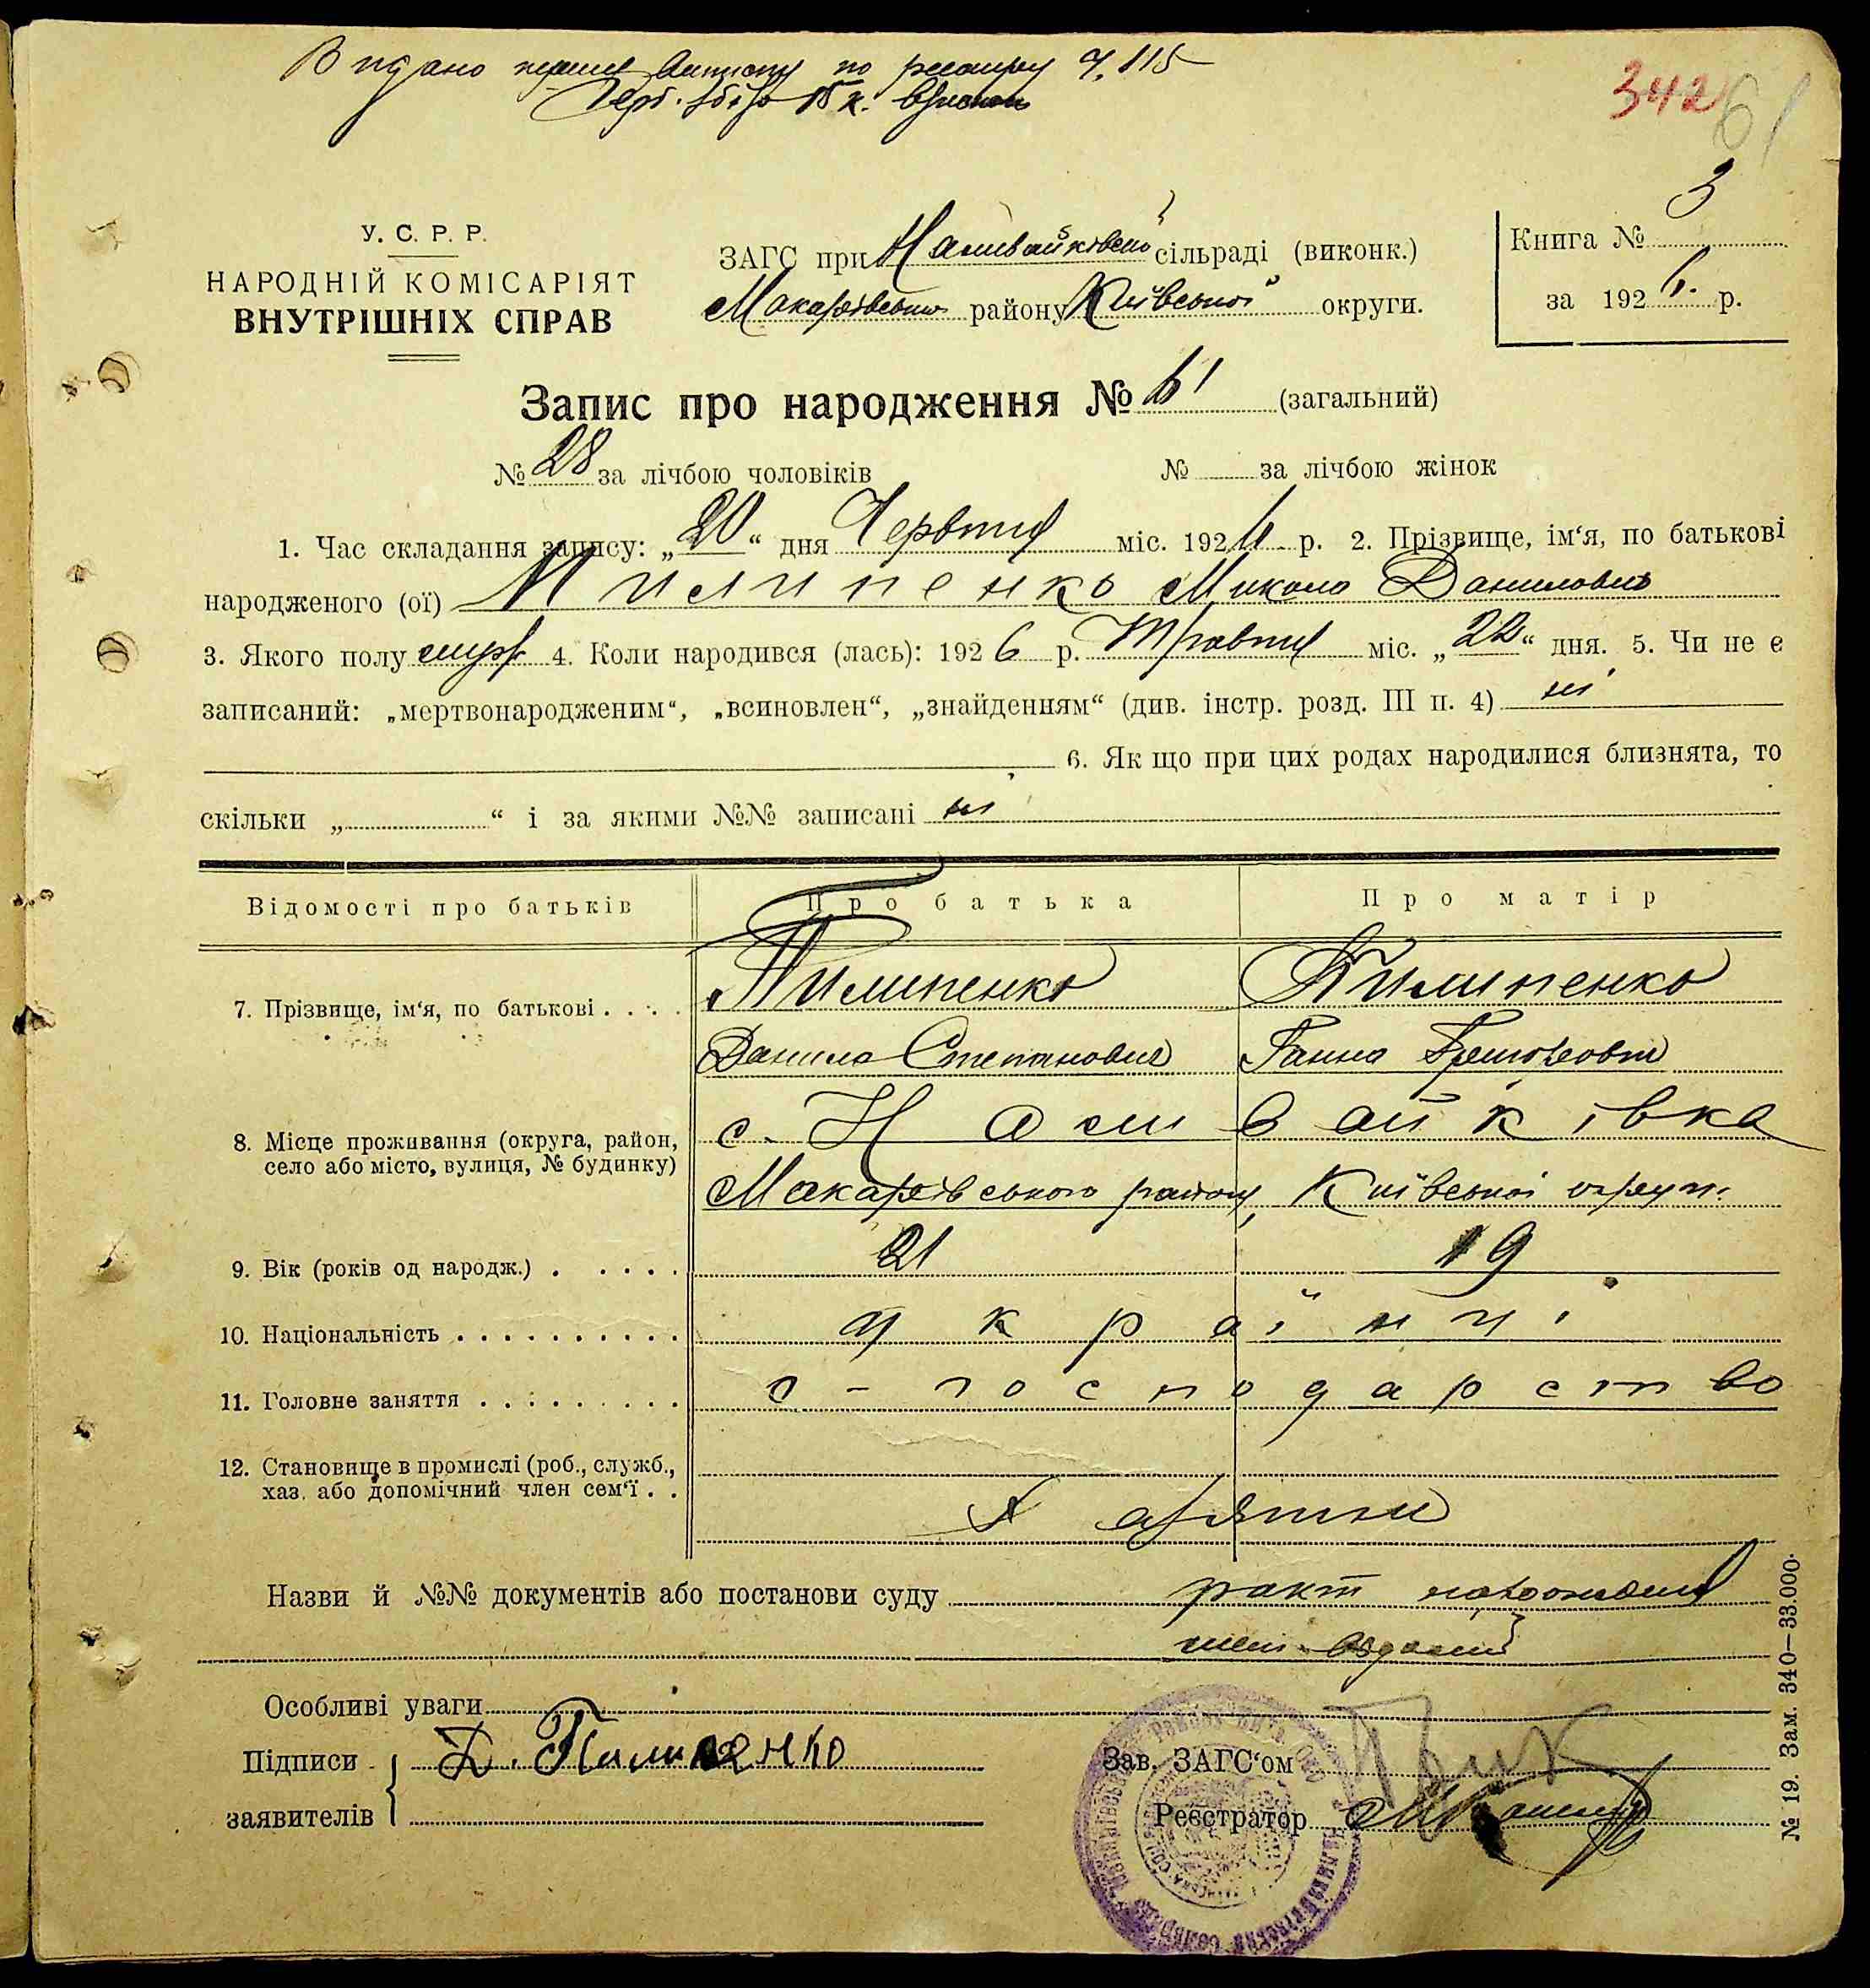 Видано першу виписку по реєстру Ч. 115
Герб. збір 15 к.
342 61
У. С. Р. Р.
НАРОДНІЙ КОМІСАРІЯТ
ВНУТРІШНІХ СПРАВ
ЗАГС при Наливайківській сільраді (виконк.)
Макарівського району Київської округи.
Книга № 3
за 1926 р.
Запис про народження № 61 (загальний)
№ 28 за лічбою чоловіків № за лічбою жінок
1. Час складання запису: „20“ дня Червня міс. 1926 р. 2. Прізвище, ім‘я, по батькові
народженого (ої) Пилипенко Микола Данилович
3. Якого полу муж. 4. Коли народився (лась): 1926 р. Травня міс. „22“ дня. 5. Чи не є
записаний: „мертвонародженим“, „всиновлен“, „знайденням“ (див. інстр. розд. III п. 4) ні
6. Як що при цих родах народилися близнята, то
скільки „ “ і за якими №№ записані ні
Відомості про батьків Про батька Про матір
7. Прізвище, ім‘я, по батькові . . . . Пилипенко Пилипенко
Данило Степанович Ганна Григоровна
8. Місце проживання (округа, район, с. Наливайківка
село або місто, вулиця, № будинку)
Макарівського району, Київської округи.
9. Вік (років од народж.) . . . . . 21 19
10. Національність . . . . . . . . . . українці
11. Головне заняття . . . . . . . . . с-господарство
12. Становище в промислі (роб., служб.,
хаз. або допомічний член сем‘ї . .
Назви й №№ документів або постанови суду факт народження
Особливі уваги
Підписи Д. Пилипенко
заявителів
Зав. ЗАГС‘ом
Реєстратор
№ 19. Зам. 340—33.000.